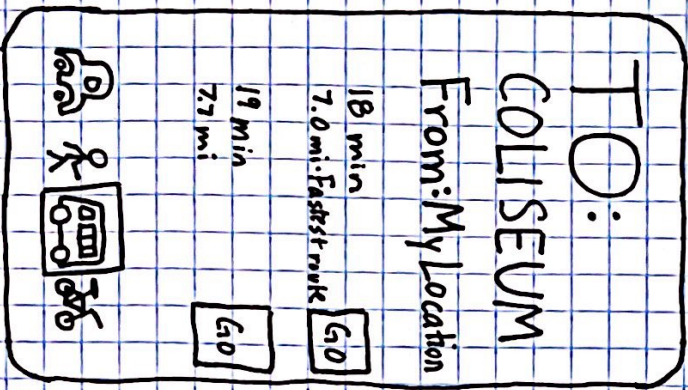 TO:
COLISEUM
From: My Location
18 min
7.0 mi. Fastest route
GO
19 min
7.7 mi
GO